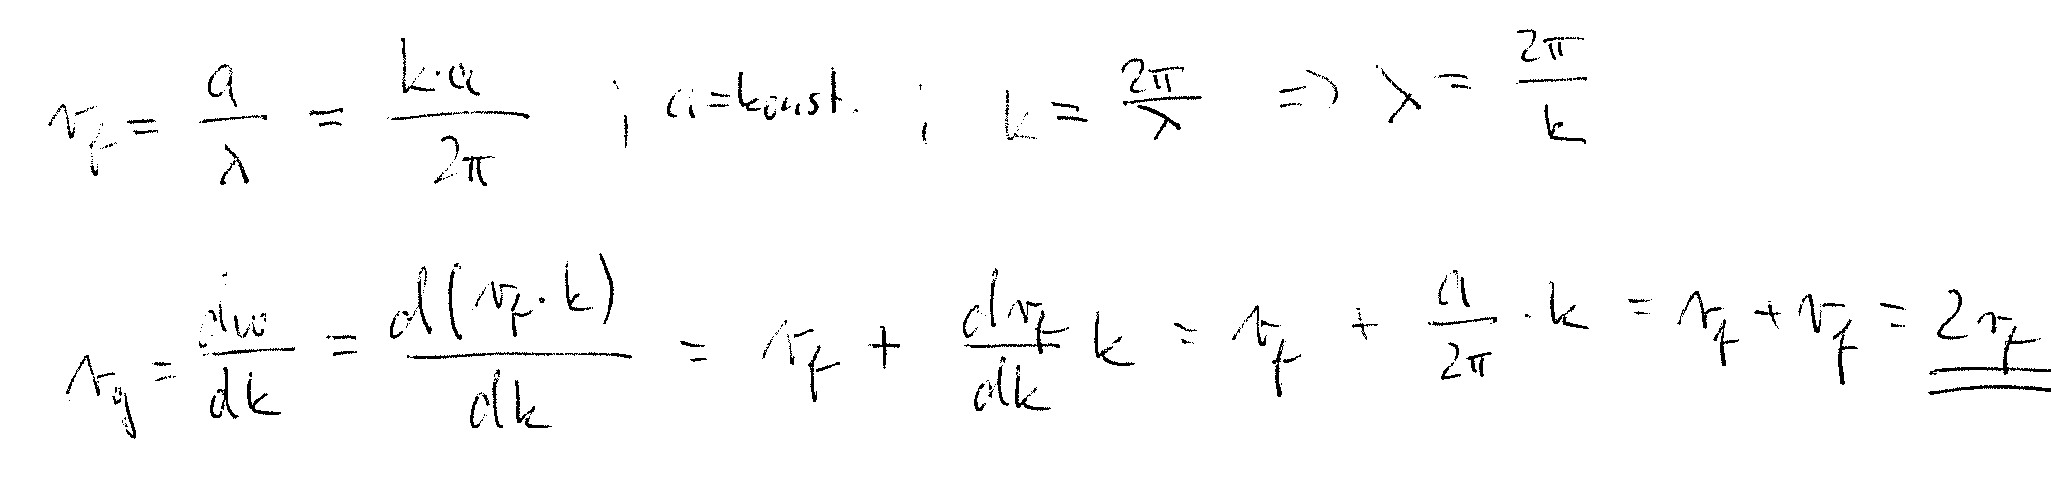 v_f = a/λ = k·a/2π ; a = konst. ; k = 2π/λ => λ = 2π/k
v_g = dω/dk = d(v_f·k)/dk = v_f + dv_f/dk k = v_f + a/2π · k = v_f + v_f = 2v_f